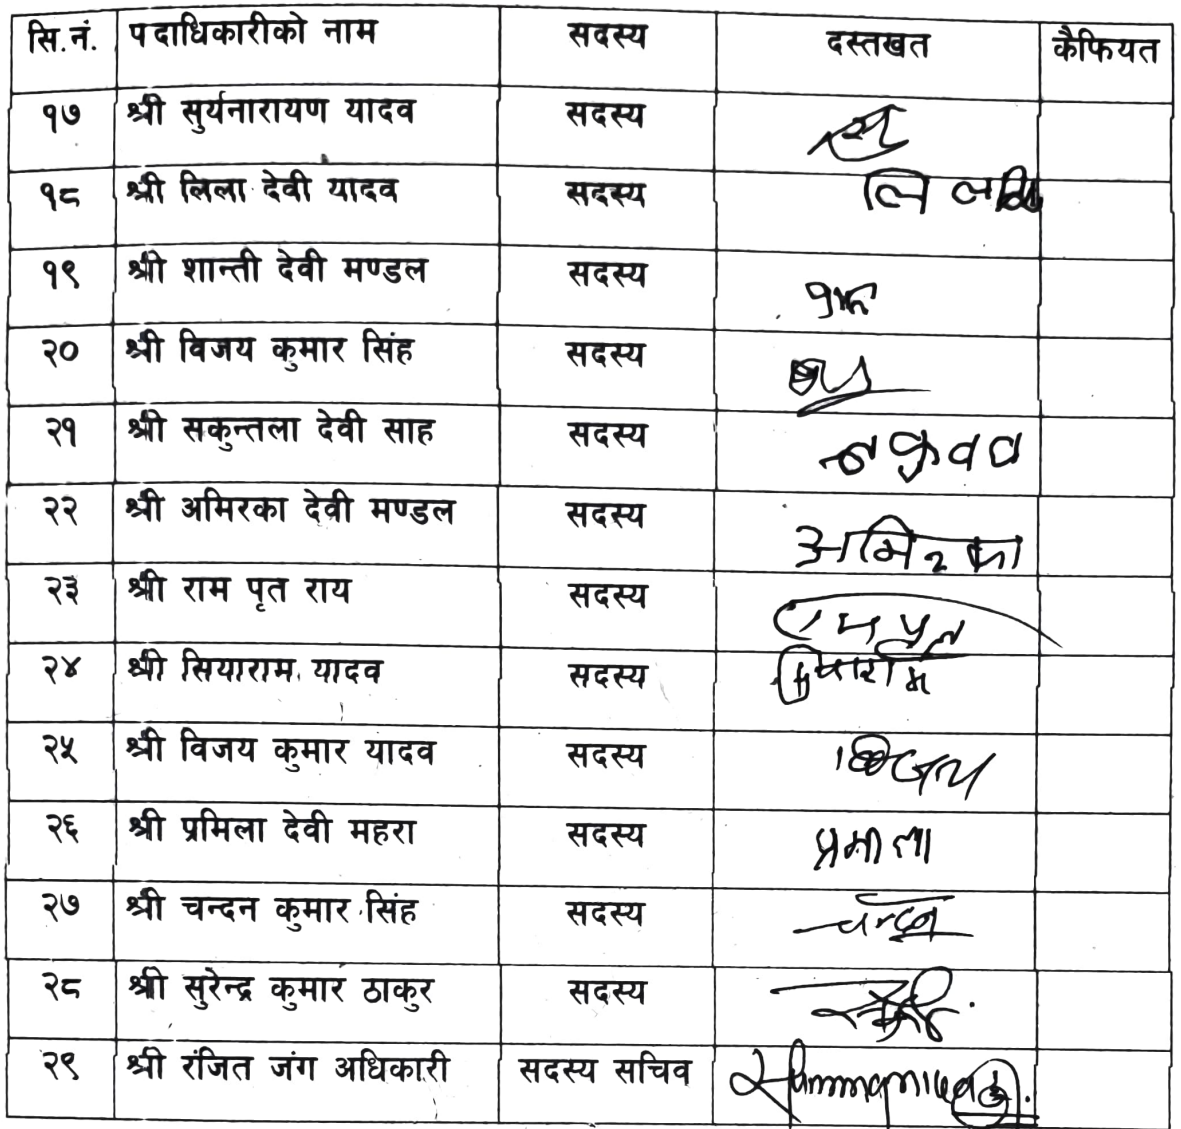 सि.नं. पदाधिकारीको नाम सदस्य दस्तखत कैफियत
१७ श्री सुर्यनारायण यादव सदस्य
१८ श्री लिला देवी यादव सदस्य
१९ श्री शान्ती देवी मण्डल सदस्य
२० श्री विजय कुमार सिंह सदस्य
२१ श्री सकुन्तला देवी साह सदस्य
२२ श्री अमिरका देवी मण्डल सदस्य अमिरका
२३ श्री राम पृत राय सदस्य
२४ श्री सियाराम यादव सदस्य सियाराम
२५ श्री विजय कुमार यादव सदस्य विजय
२६ श्री प्रमिला देवी महरा सदस्य प्रमीला
२७ श्री चन्दन कुमार सिंह सदस्य चन्दन
२८ श्री सुरेन्द्र कुमार ठाकुर सदस्य
२९ श्री रंजित जंग अधिकारी सदस्य सचिव